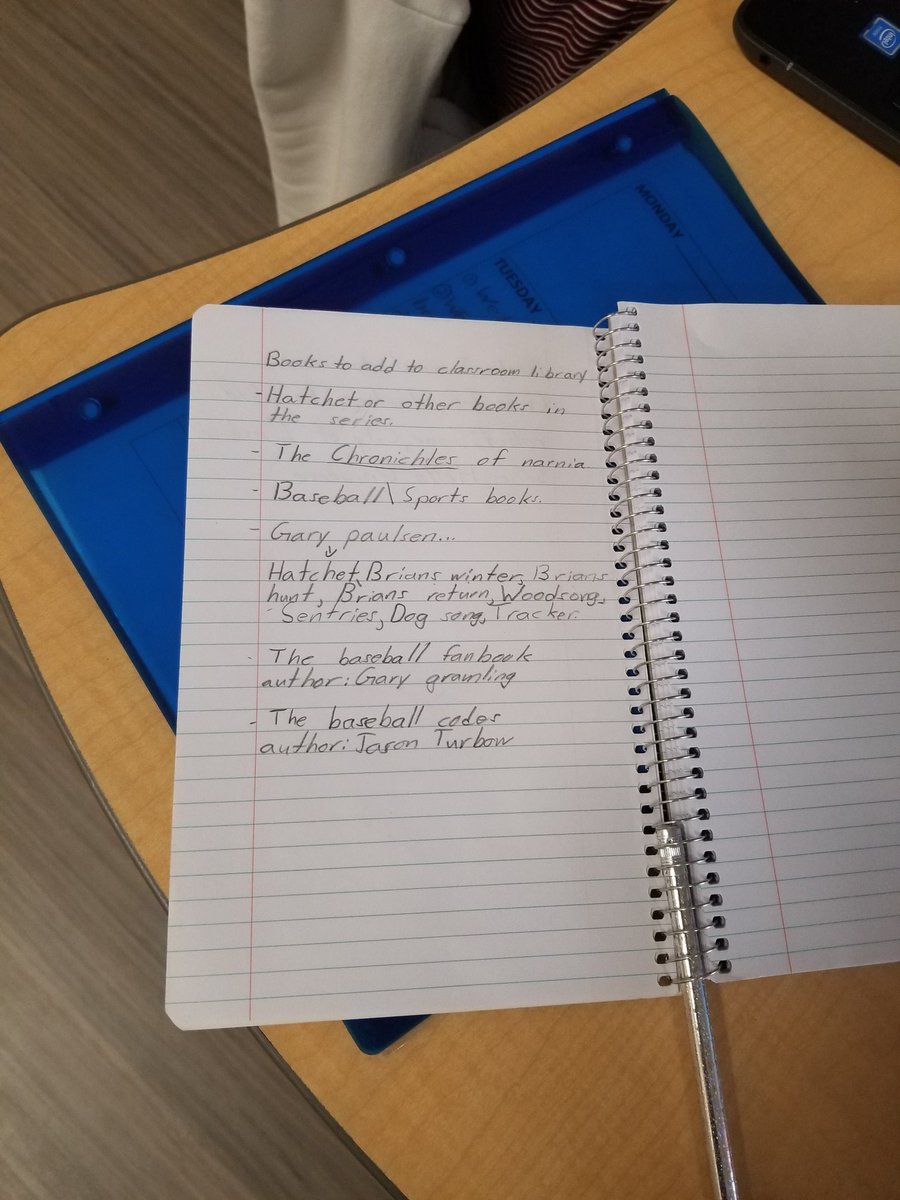 MONDAY
TUESDAY
intel
Books to add to classroom library
- Hatchet or other books in
the series.
- The Chronichles of narnia
- Baseball\ Sports books.
- Gary paulsen...
↓
Hatchet, Brians winter, Brians
hunt, Brians return, Woodsong,
Sentries, Dog song, Tracker.
- The baseball fanbook
author: Gary gramling
- The baseball codes
author: Jason Turbow